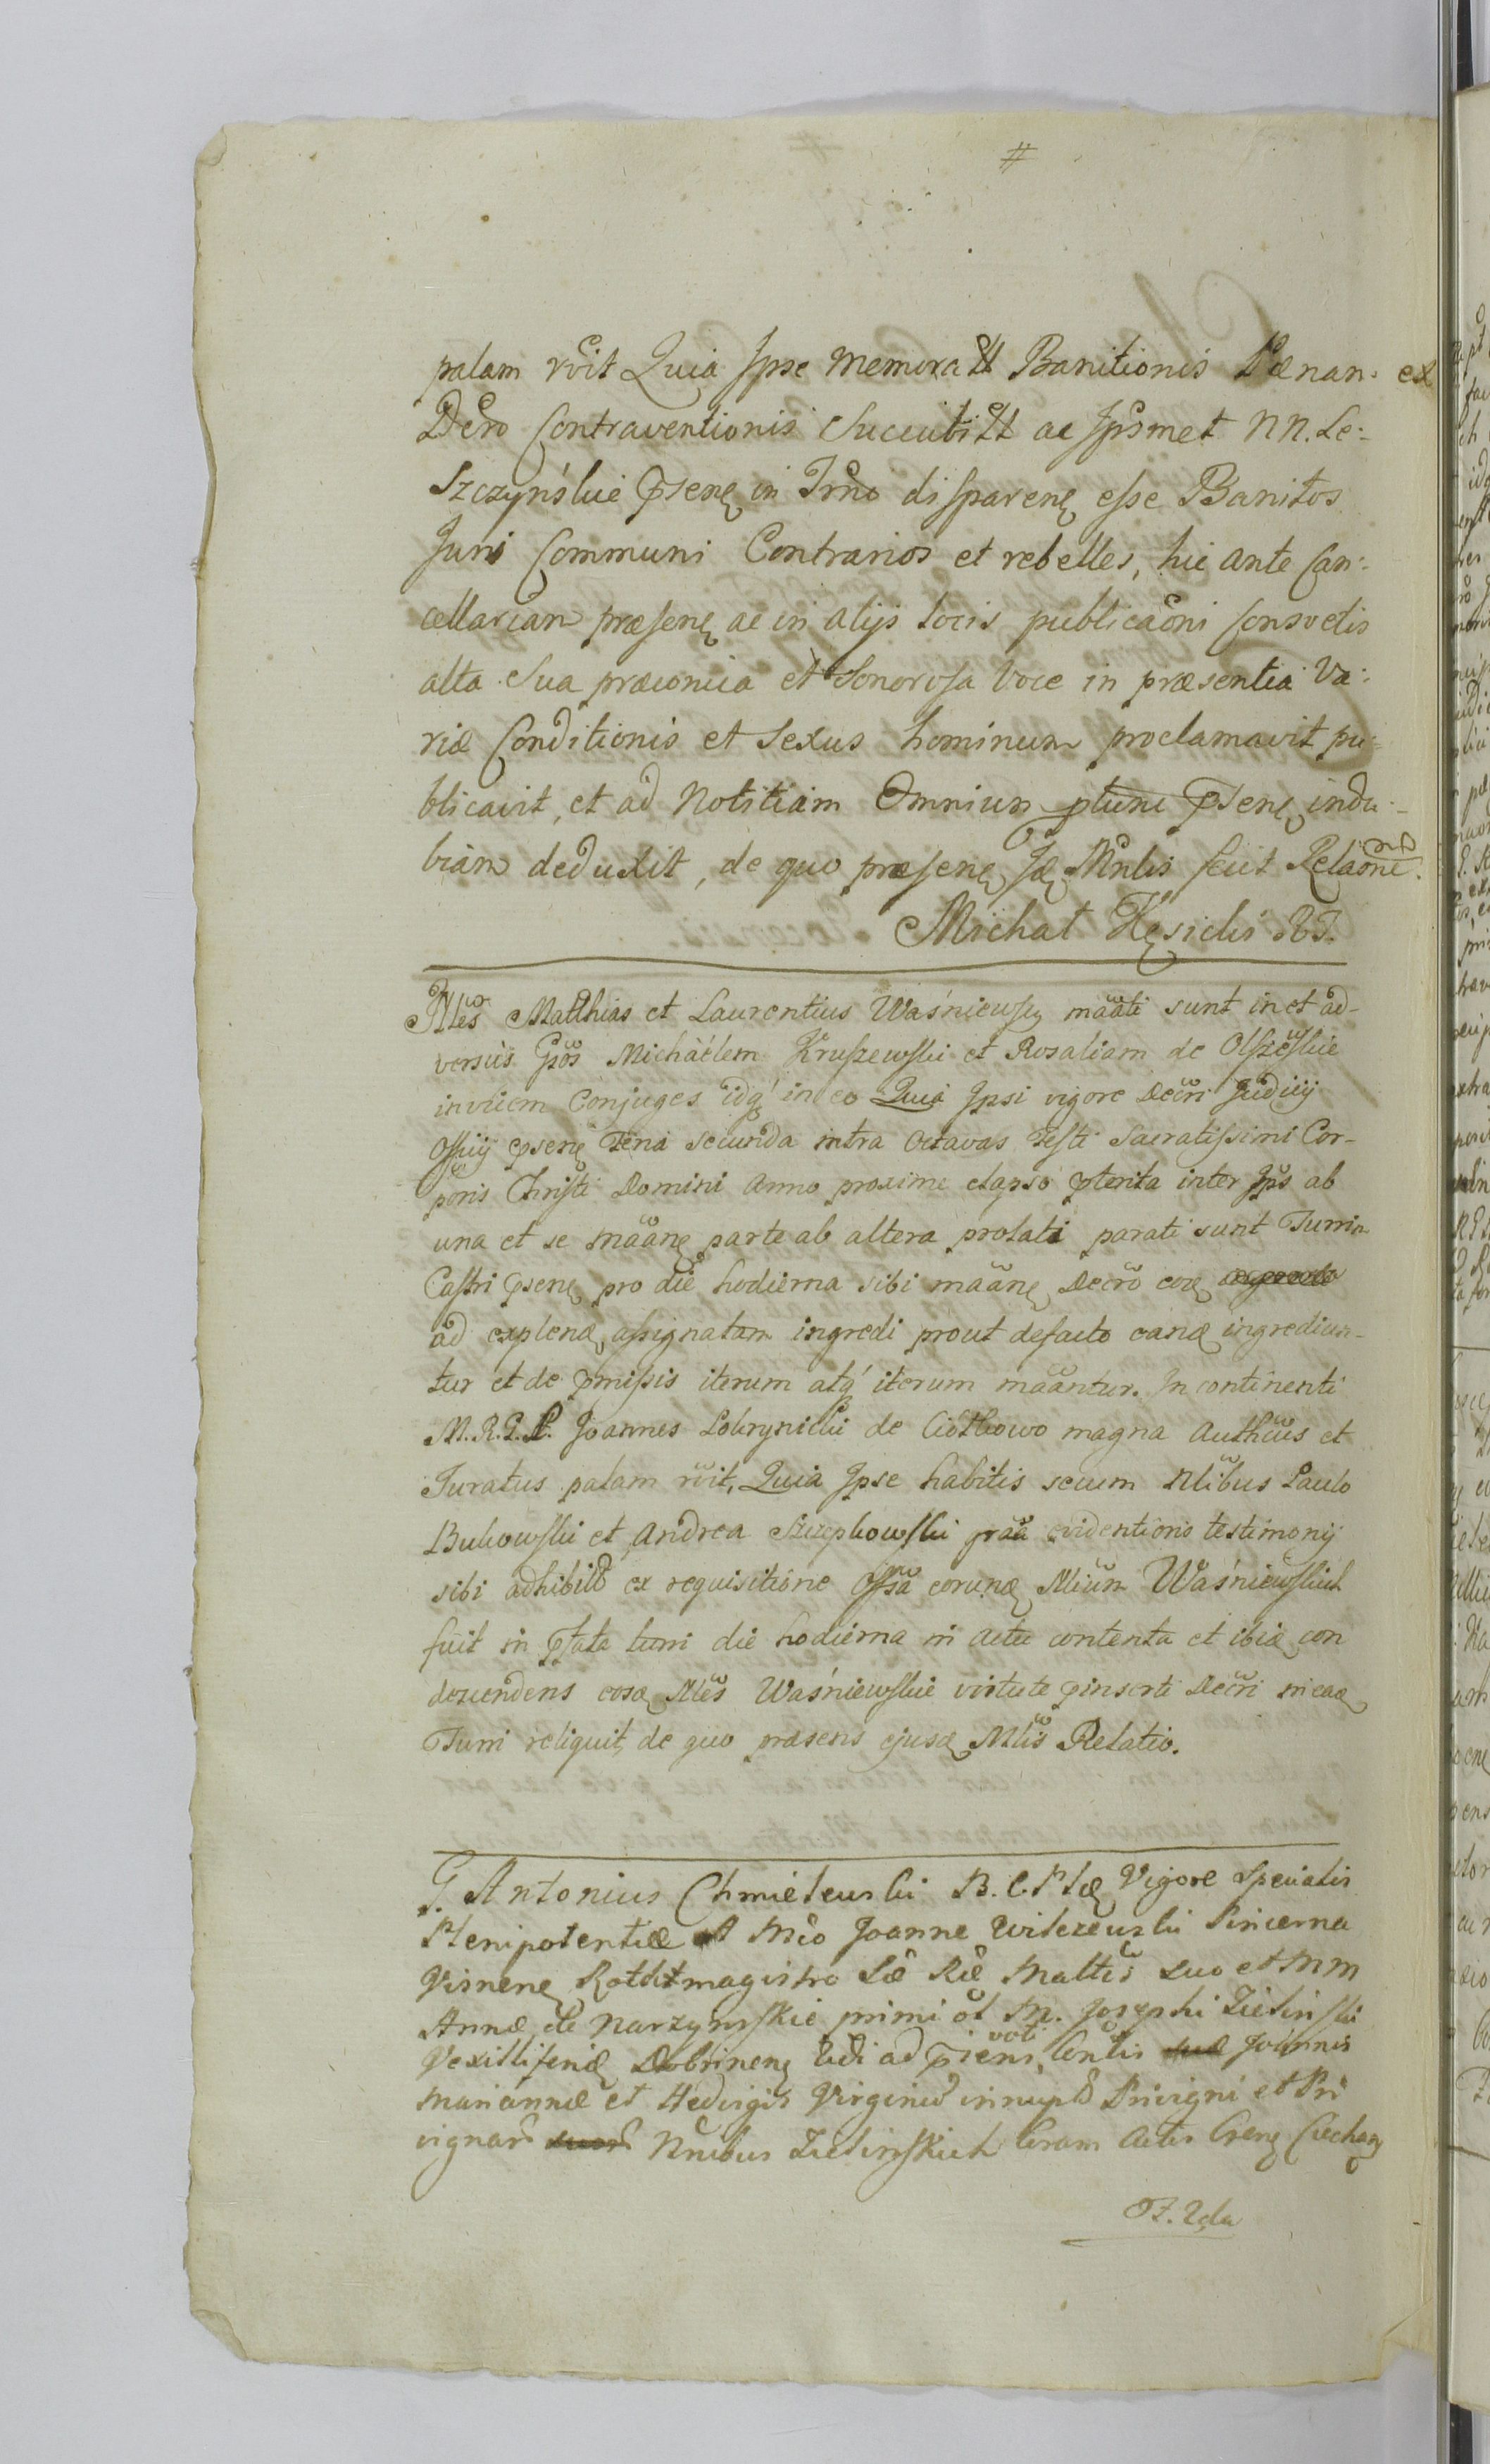 #
palam rvit Quia Ipse Memoratt Banitionis Pænan. ex
Dcro Contraventionis Succubitt ac Ipsmet NN. Le:
Szczyńskie Psenę in Trno disparenę esse Banitos
Juri Communi Contrarios et rebelles, hic ante Can:
cellariam præsenę ac in alijs locis publicaoni consvetis
alta Sua præconica et Sonorosa Voce in præsentia Va:
riæ Conditionis et Sexus hominum proclamavit pu:
blicavit, et ad Notitiam Omnium ptum Psenę indu:
biam deduxit, de quo præsenę Mnlis fecit Relaone.
Michał
Mles Matthias et Laurentius Waśniewscy maati sunt in et ad-
versus Gsos Michäelem Kruszewski et Rosaliam de Olszeskie
invicem Conjuges idq in eo Quia Ipsi vigore Decri Judicij
Offcij psenę Feria secunda intra Octavas Festi Sacratissimi Cor-
poris Christi Domini Anno proxime elapso pterita inter Ips ab
una et se maanę parte ab altera prolati parati sunt Turrim
Castri psenę pro die hodierna sibi maanę Decro eoę
ad explenæ assignatam ingredi prout defacto eanæ ingrediun-
tur et de pmissis iterum atq iterum maantur. In continenti
M.R.G.P. Joannes Pokrynicki de Ciółkowo magna Authcus et
Juratus palam rvit, Quia Ipse habitis secum Nlibus Paulo
Bukowski et Andrea Szczepkowski graa evidentioris testimonij
sibi adhibitt ex requisitione Offsa eorunę Mlium Waśniewskich
fuit in Pfata turri die hodierna in actu contenta et ibiæ con
descendens eosæ Mles Waśniewskie virtute pinserti Decri in eaæ
Turri reliquit, de quo præsens ejusæ Mlis Relatio.
G. Antonius Chmielewski B.C. Plæ Vigore Specialis
Plenipotentiæ A Mco Joanne Wilczewski Pincerna
Visnenę Rottmagistro Sæ Ræ Mattis Suo et MM
Annæ de Narzymskie primi ol M. Josephi Zielinski
Vexilliferiæ Dobrinenę Vidi ad Psens voti Contis suæ Joannis
Mariannæ et Hedvigis Virginu innupt Privigni et Pri
vignar suor Nnibus Zielinskich Coram Actis Crenę Ciechanę